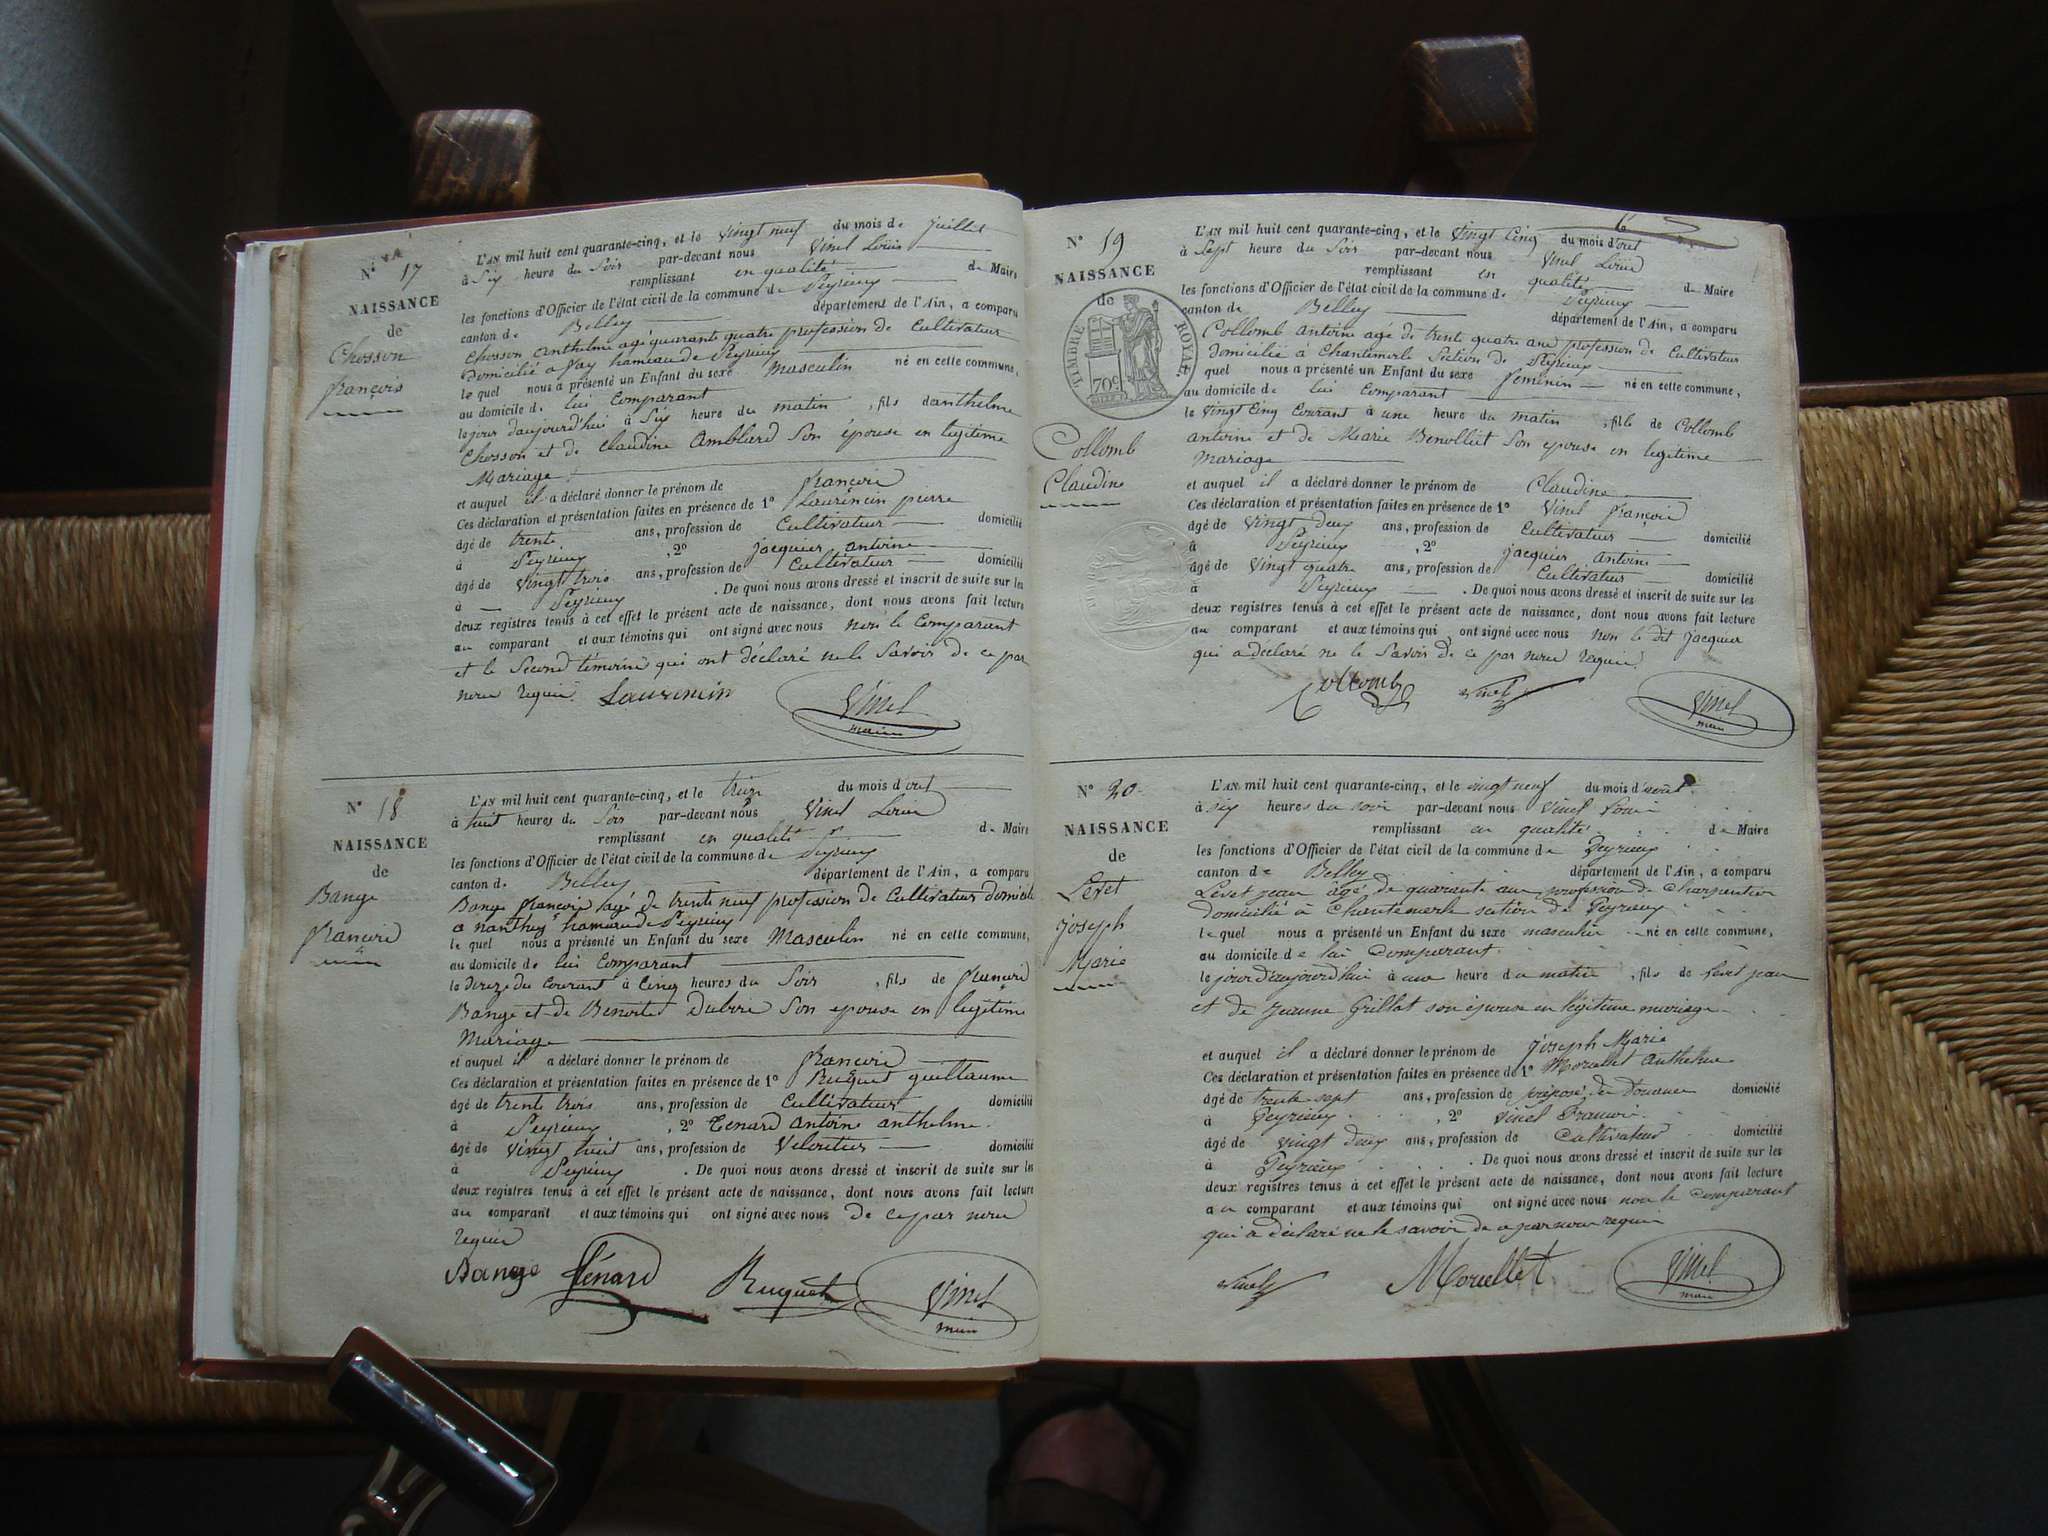 N° 17
NAISSANCE
de
Chosson
françois
L'AN mil huit cent quarante-cinq, et le vingt neuf du mois de Juillet
à Six heure du Soir par-devant nous Vinel Louis
remplissant en qualité de Maire
les fonctions d'Officier de l'état civil de la commune de Peyrieux
canton de Belley département de l'Ain, a comparu
Chosson Anthelme agé quarante quatre profession de Cultivateur
domicilié a Vay hamiau de Peyrieux
lequel nous a présenté un Enfant du sexe Masculin né en cette commune,
au domicile de lui Comparant
le jour d'aujourd'hui à Six heure du matin , fils d'anthelme
Chosson et de Claudine Amblard Son épouse en legitime
Mariage
et auquel il a déclaré donner le prénom de françois
Ces déclaration et présentation faites en présence de 1° Laurencin pierre
âgé de trente ans, profession de Cultivateur domicilié
à Peyrieux , 2° jacquier antoine
âgé de Vingt trois ans, profession de Cultivateur domicilié
à Peyrieux . De quoi nous avons dressé et inscrit de suite sur les
deux registres tenus à cet effet le présent acte de naissance, dont nous avons fait lecture
au comparant et aux témoins qui ont signé avec nous non le Comparant
et le Second témoins qui ont déclaré ne le Savoir de ce par
nous requis Laurencin Vinel
maire
N° 18
NAISSANCE
de
Bange
françois
L'AN mil huit cent quarante-cinq, et le treize du mois d'out
à huit heures du Soir par-devant nous Vinel Louis
remplissant en qualité de Maire
les fonctions d'Officier de l'état civil de la commune de Peyrieux
canton de Belley département de l'Ain, a comparu
Bange françois agé de trente neuf profession de Cultivateur domicilié
a nanthuy hamiau de Peyrieux
lequel nous a présenté un Enfant du sexe Masculin né en cette commune,
au domicile de lui Comparant
le treize du Courant à Cinq heures du Soir , fils de françois
Bange et de Benoite Son epouse en legitime
Mariage
et auquel il a déclaré donner le prénom de françois
Ces déclaration et présentation faites en présence de 1° Ruquet guillaume
âgé de trente trois ans, profession de Cultivateur domicilié
à Peyrieux , 2° Tenard Antoine anthelme
âgé de Vingt huit ans, profession de domicilié
à Peyrieux . De quoi nous avons dressé et inscrit de suite sur les
deux registres tenus à cet effet le présent acte de naissance, dont nous avons fait lecture
au comparant et aux témoins qui ont signé avec nous de ce par nous
requis
Bange Ténard Ruquet Vinel
maire
N° 19
NAISSANCE
de
TIMBRE ROYAL
70c
Collomb
Claudine
L'AN mil huit cent quarante-cinq, et le Vingt Cinq du mois d'out
à Sept heure du Soir par-devant nous Vinel Louis
remplissant en qualité de Maire
les fonctions d'Officier de l'état civil de la commune de Peyrieux
canton de Belley département de l'Ain, a comparu
Collomb antoine agé de trente quatre ans profession de Cultivateur
domicilié à Chantemerle Section de Peyrieux
lequel nous a présenté un Enfant du sexe feminin né en cette commune,
au domicile de lui Comparant
le Vingt Cinq Courant à une heure du matin , fille de Collomb
antoine et de Marie Benollict Son epouse en legitime
mariage
et auquel il a déclaré donner le prénom de Claudine
Ces déclaration et présentation faites en présence de 1° Vinel françois
âgé de Vingt deux ans, profession de Cultivateur domicilié
à Peyrieux , 2° jacquier antoine
âgé de Vingt quatre ans, profession de Cultivateur domicilié
à Peyrieux . De quoi nous avons dressé et inscrit de suite sur les
deux registres tenus à cet effet le présent acte de naissance, dont nous avons fait lecture
au comparant et aux témoins qui ont signé avec nous non le dit jacquier
qui a déclaré ne le Savoir de ce par nous requis
Collomb Vinel Vinel
maire
N° 20
NAISSANCE
de
Levet
joseph
Marie
L'AN mil huit cent quarante-cinq, et le vingt neuf du mois d'aout
à six heures du soir par-devant nous Vinel Louis
remplissant en qualité de Maire
les fonctions d'Officier de l'état civil de la commune de Peyrieux
canton de Belley département de l'Ain, a comparu
Levet jean âgé de quarante ans profession de charpentier
domicilié à Chantemerle section de Peyrieux
lequel nous a présenté un Enfant du sexe masculin né en cette commune,
au domicile de lui Comparant
le jour d'aujourd'hui à une heure du matin , fils de Levet jean
et de Jeanne Grillot son épouse en légitime mariage
et auquel il a déclaré donner le prénom de joseph Marie
Ces déclaration et présentation faites en présence de 1° Morcellet Anthelme
âgé de trente sept ans, profession de préposé de Douanes domicilié
à Peyrieux , 2° Vinel Francois
âgé de vingt deux ans, profession de Cultivateur domicilié
à Peyrieux . De quoi nous avons dressé et inscrit de suite sur les
deux registres tenus à cet effet le présent acte de naissance, dont nous avons fait lecture
au comparant et aux témoins qui ont signé avec nous non le comparant
qui a déclaré ne le savoir de ce par nous requis
Vinel Morcellet Vinel
maire